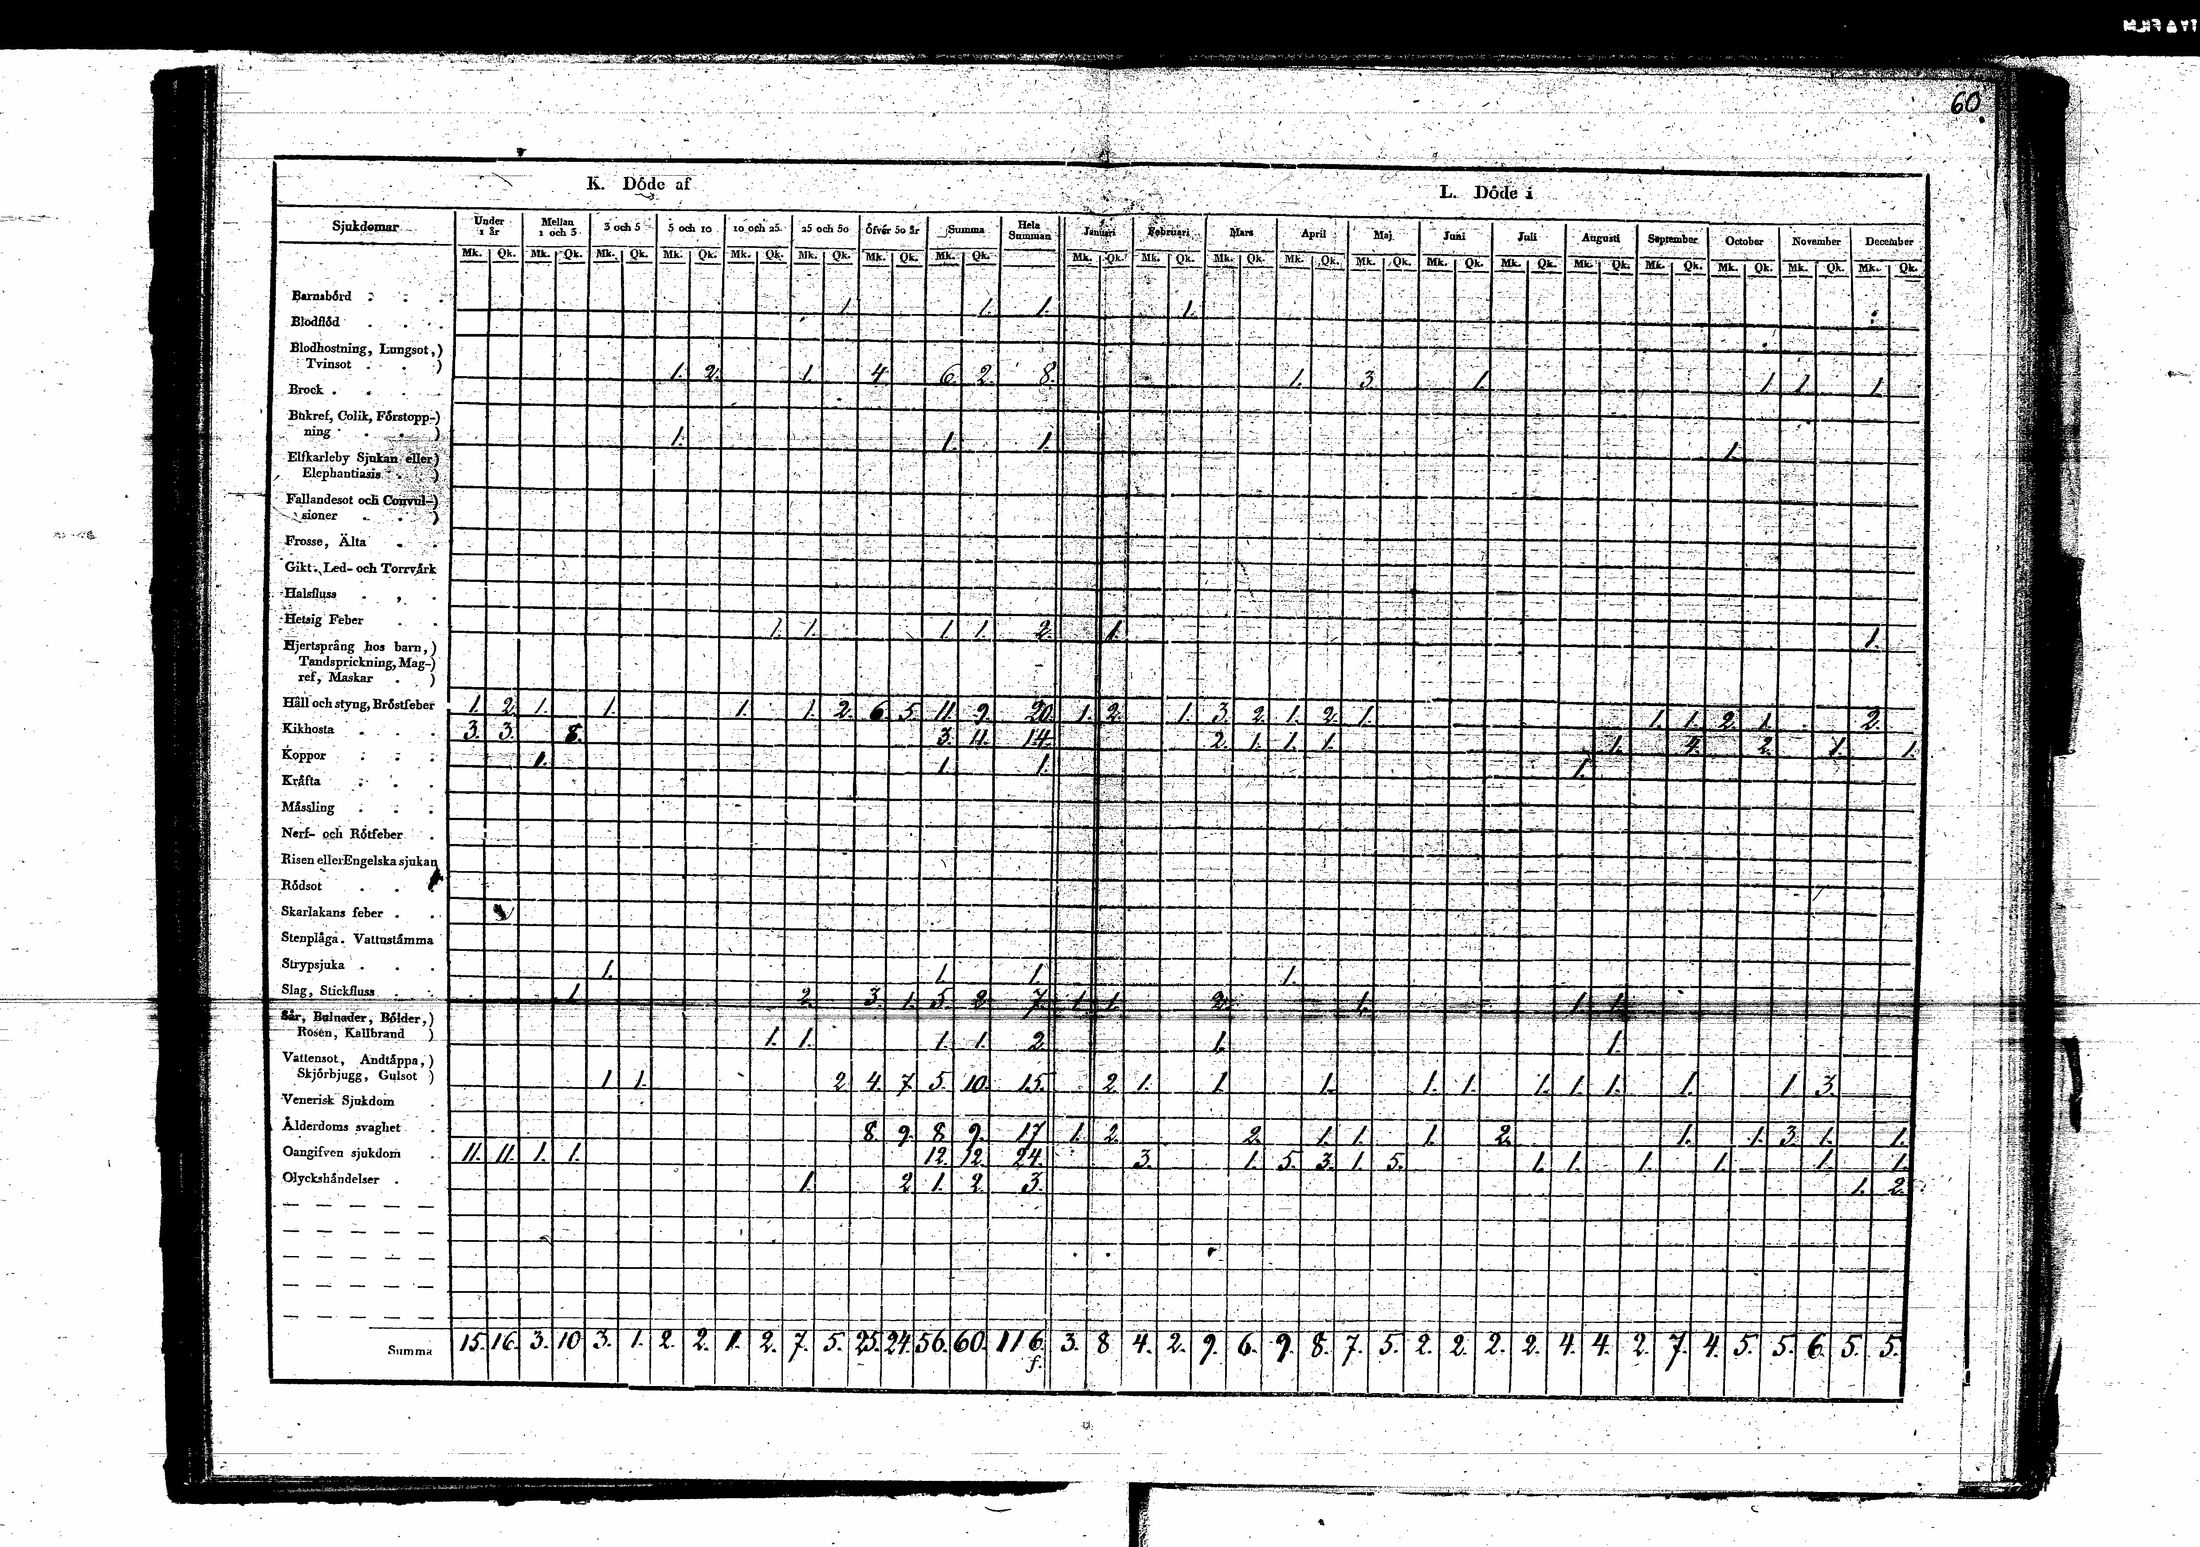 60.
K. Döde af L. Döde i
Sjukdomar Under 1 år Mellan 1 och 3 3 och 5 5 och 10 10 och 25 25 och 50 öfver 50 år Summa Hela Summan Januari Februari Mars April Maj Juni Juli Augusti September October November December
Mk. Qk. Mk. Qk. Mk. Qk. Mk. Qk. Mk. Qk. Mk. Qk. Mk. Qk. Mk. Qk. Mk. Qk. Mk. Qk. Mk. Qk. Mk. Qk. Mk. Qk. Mk. Qk. Mk. Qk. Mk. Qk. Mk. Qk. Mk. Qk. Mk. Qk. Mk. Qk.
Barnsbörd 1. 1. 1. 1.
Blodflöd
Blodhostning, Lungsot,)
Tvinsot ) 1. 2. 1. 4 6 2. 8. 1. 3. 1. 1 1 1.
Brock
Bukref, Colik, Förstopp-)
ning ) 1. 1. 1. 1.
Elfkarleby Sjukan eller)
Elephantiasis )
Fallandesot och Convul-)
sioner )
Frosse, Älta
Gikt, Led- och Torrvärk
Halsfluss
Hetsig Feber 1. 1. 1. 1. 2. 1. 1.
Hjertsprång hos barn,)
Tandsprickning, Mag-)
ref, Maskar )
Håll och styng, Bröstfeber 1. 2. 1. 1. 1. 1. 2. 6. 5. 11. 9. 20. 1. 2. 1. 3. 2. 1. 2. 1. 1. 1. 2. 1. 2.
Kikhosta 3. 3. 8. 3. 11. 14. 2. 1. 1. 1. 1. 4. 2. 1. 1.
Koppor 1. 1. 1. 1.
Kräfta
Mässling
Nerf- och Rötfeber
Risen eller Engelska sjukan
Rödsot
Skarlakans feber
Stenplåga. Vattustämma
Strypsjuka 1. 1. 1. 1.
Slag, Stickfluss 1. 2. 3. 1. 5. 2. 7. 1. 1. 2. 1. 1. 1.
Sår, Bulnader, Bölder,)
Rosen, Kallbrand ) 1. 1. 1. 1. 2 1. 1.
Vattensot, Andtäppa,)
Skjörbjugg, Gulsot ) 1 1. 2 4. 7 5. 10. 15. 2 1. 1. 1. 1. 1. 1. 1. 1. 1. 1 3.
Venerisk Sjukdom
Ålderdoms svaghet 8. 9. 8 9. 17 1. 2. 2. 1. 1. 1. 2. 1. 1. 3. 1. 1.
Oangifven sjukdom 11. 11. 1. 1. 12. 12. 24. 3. 1. 5. 3. 1. 5. 1. 1. 1. 1. 1. 1.
Olyckshändelser 1. 2 1. 2. 3. 1. 2.
Summa 15. 16. 3. 10 3. 1. 2. 2. 1. 2. 7. 5. 25. 24. 56. 60. 116. 3. 8 4. 2. 9. 6. 9. 8. 7. 5. 2. 2. 2. 2. 4. 4. 2. 7. 4. 5. 5. 6. 5. 5.